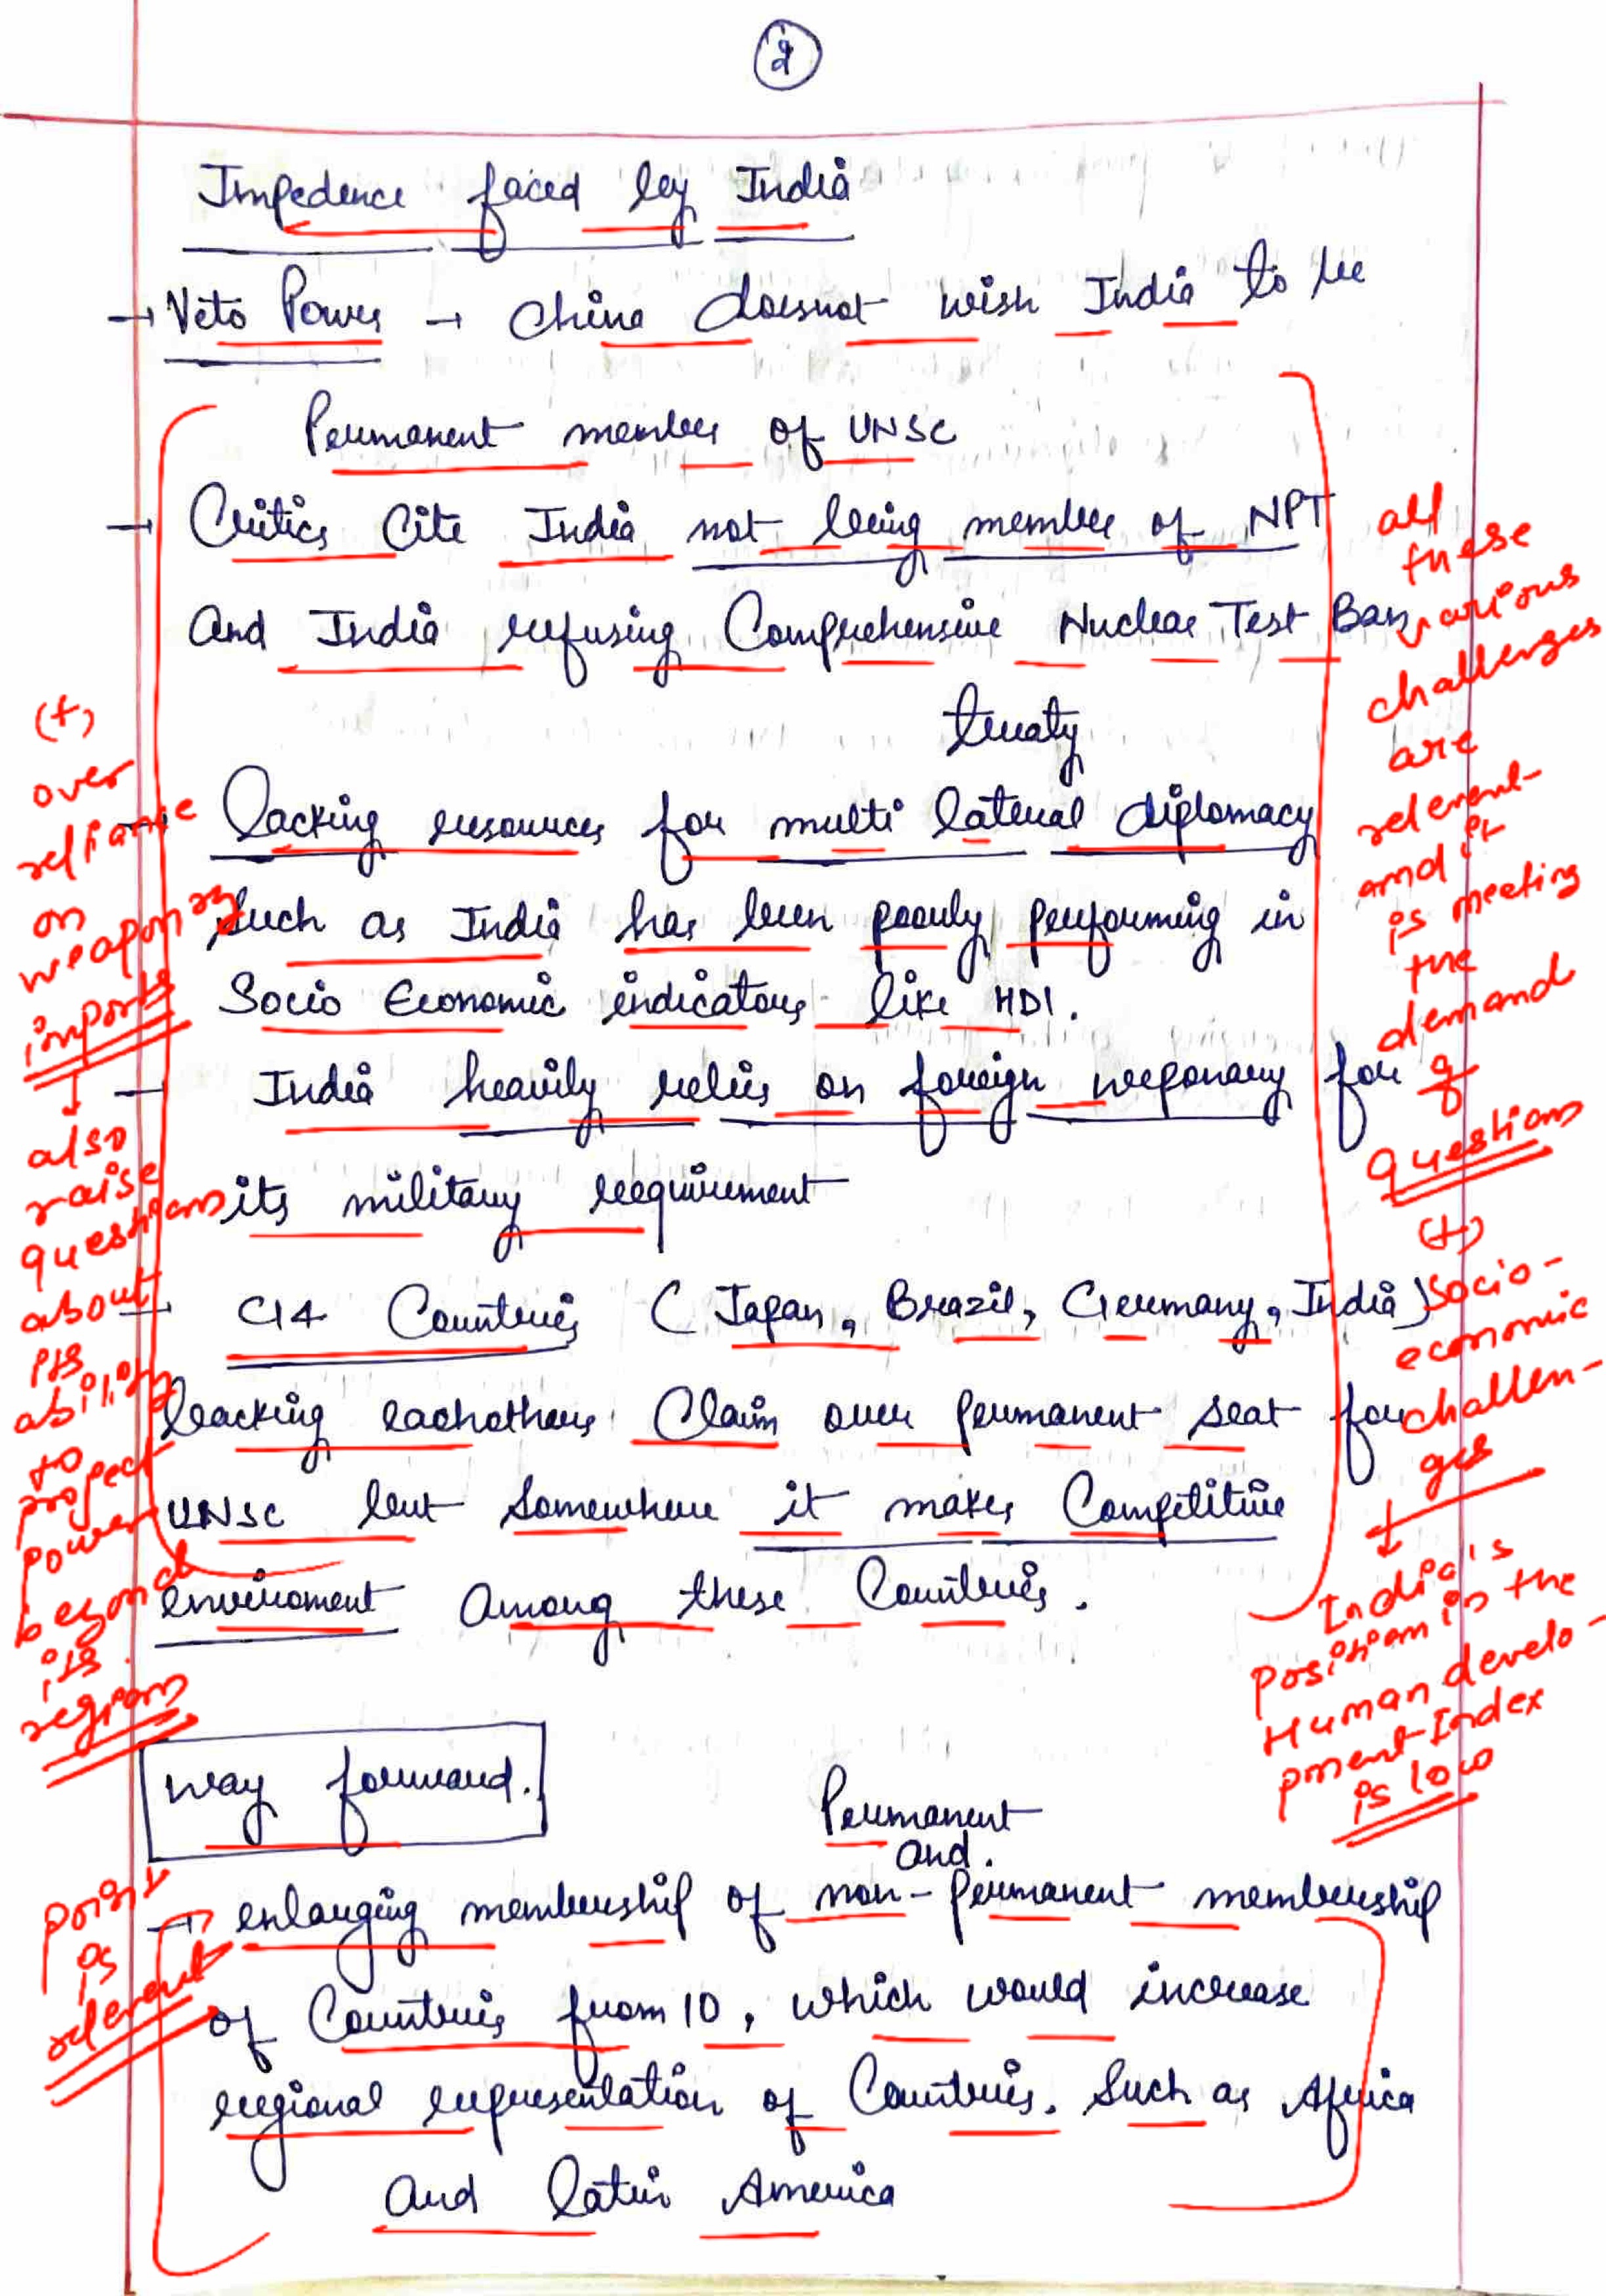 2
Impedence faced by India
→ Veto Power → China doesnot wish India to be
Permanent member of UNSC
→ Critics Cite India not being member of NPT
And India refusing Comprehensive Nuclear Test Ban
treaty
→ lacking resources for multi lateral diplomacy
such as India has been poorly performing in
Socio Economic indicators like HDI.
→ India heavily relies on foreign weponary for
its military reequirement
→ G4 Countries (Japan, Brazil, Germany, India)
backing eachothers Claim over permanent seat for
UNSC but Somewhere it makes Competitive
enviroment Among these Countries.
way forward.
Permanent
and.
→ enlarging membership of non-permanent membership
of Countries from 10, which would increase
regional representation of Countries. Such as Africa
And Latin America
(+)
over
reliance
on
weaponry
imports
↓
also
raise
questions
about
its
ability
to
project
power
beyond
its
regions
point
is
relevent
all
these
various
challenges
are
relevent
and it
is meeting
the
demand
of
questions
(+)
Socio-
economic
challen-
ges
↓
India's
position in the
Human develo-
pment Index
is low